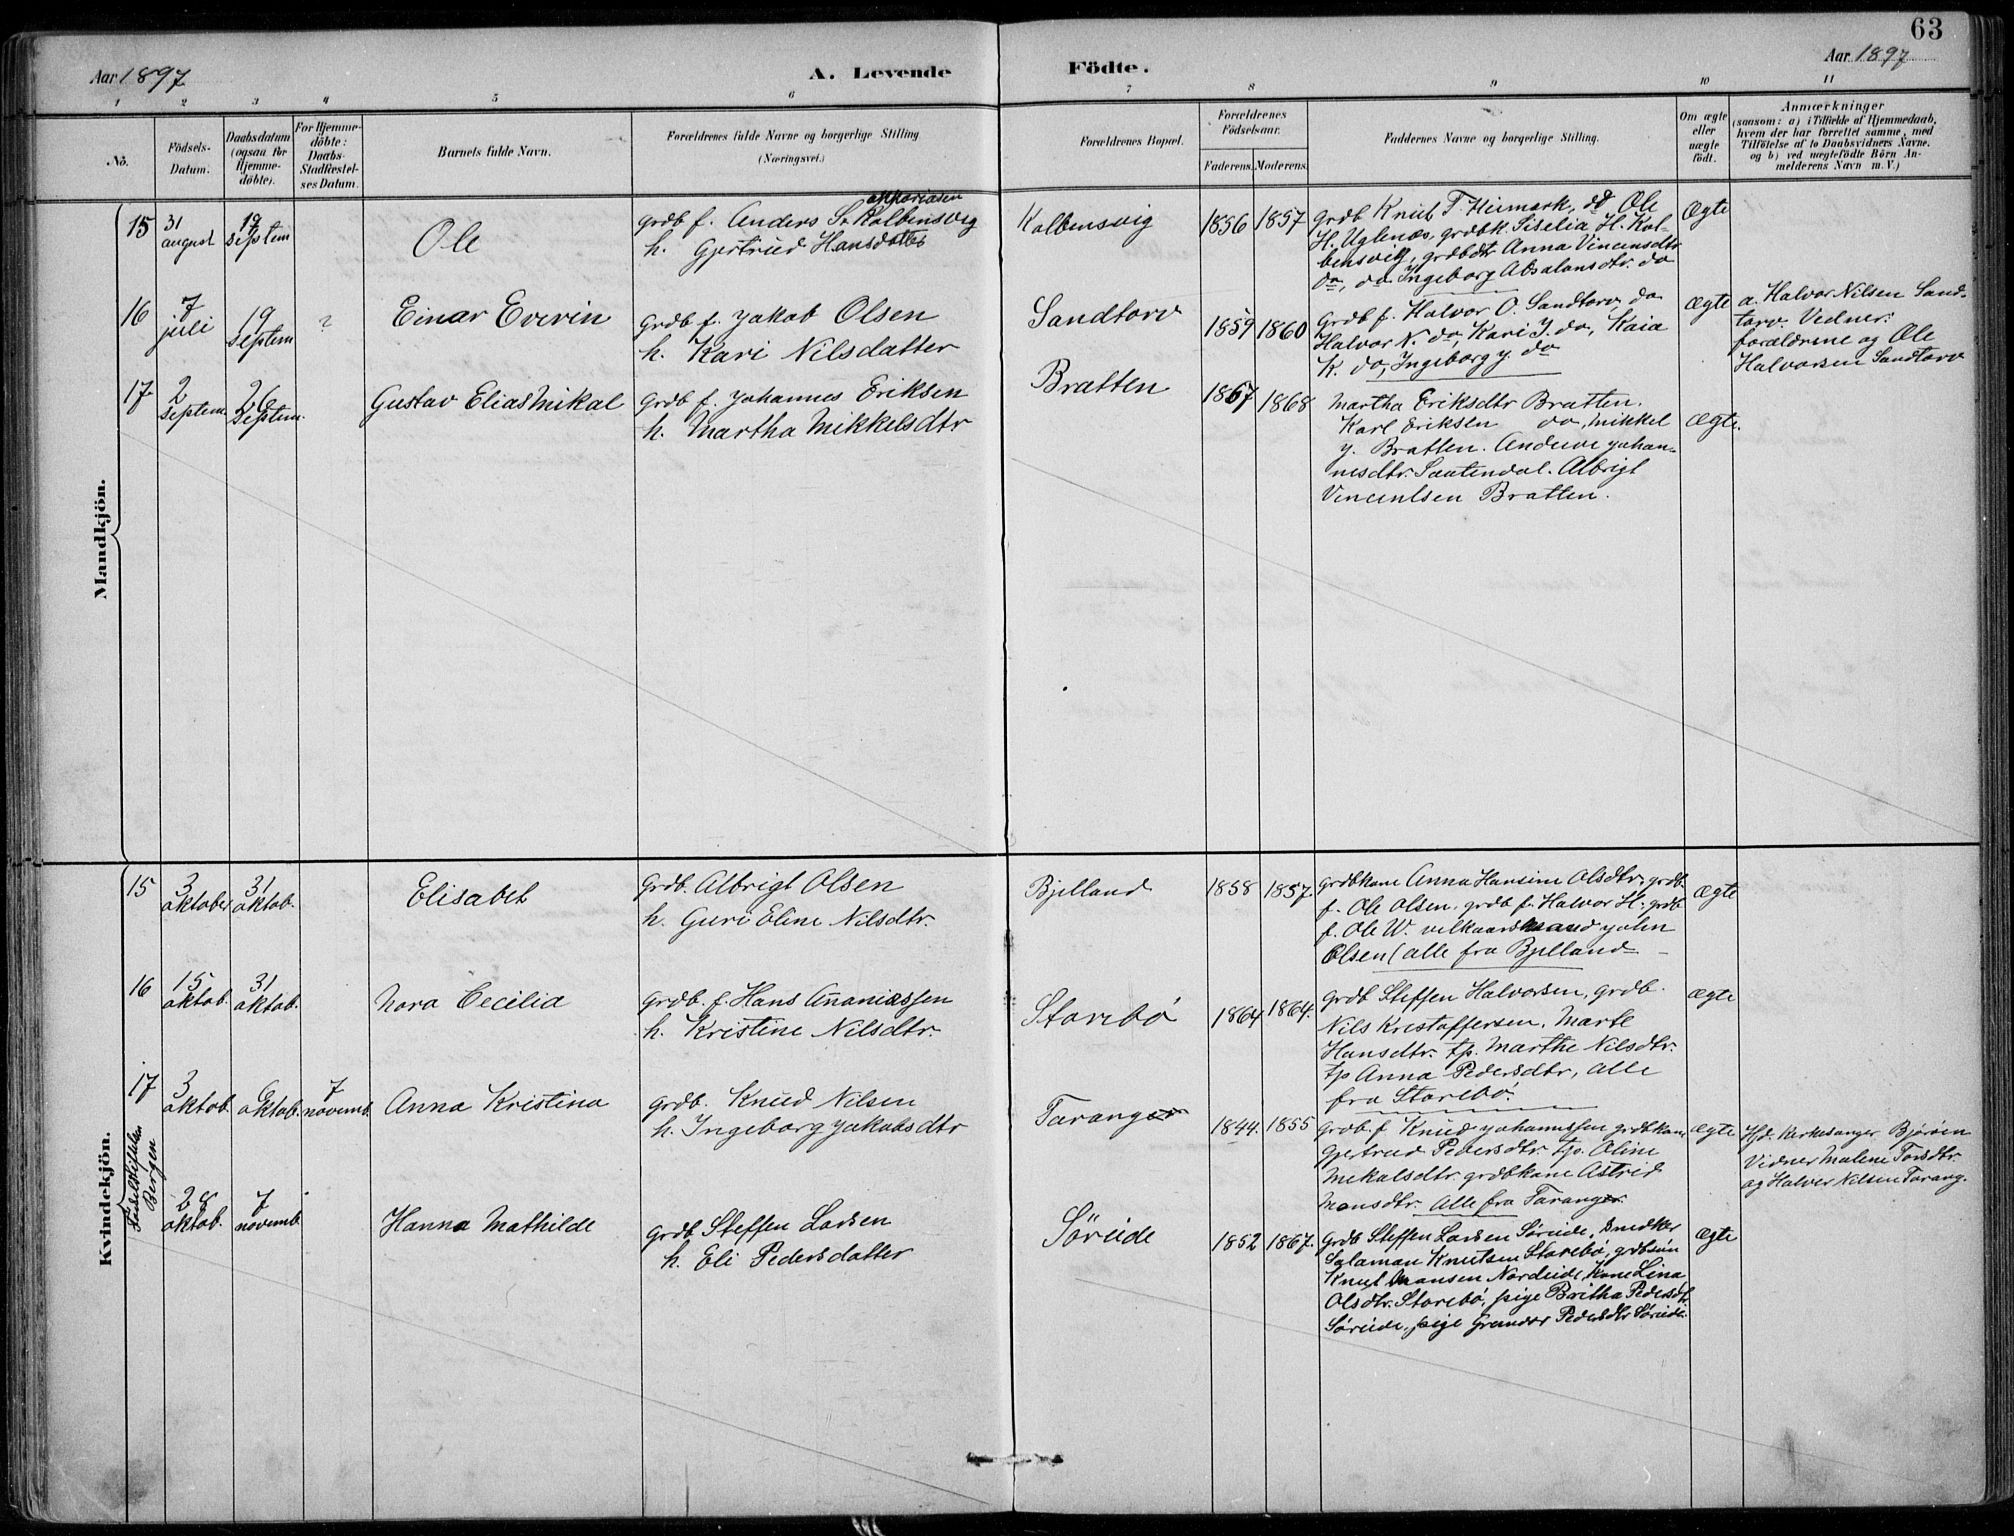 63
Aar 1897
A. Levende
Födte.
Aar 1897
1 2 3 4 5 6 7 8 9 10 11
No.
Födsels-
Datum.
Daabsdatum
(ogsaa for
Hjemme-
döbte).
For Hjemme-
döbte:
Daabs-
Stadfæstel-
ses Datum.
Barnets fulde Navn.
Forældrenes fulde Navne og borgerlige Stilling
(Næringsvei.)
Forældrenes Bopæl.
Forældrenes
Födselsaar.
Faderens. Moderens.
Faddernes Navne og borgerlige Stilling.
Om ægte
eller
uægte
födt.
Anmærkninger
(saasom: a) i Tilfælde af Hjemmedaab,
hvem der har forrettet samme, med
Tilföielse af to Daabsvidners Navne.
og b) ved uægtefödte Börn An-
melderens Navn m. V.)
Mandkjön.
15
31
august
19
septem
Ole
grdb f. Anders Kolbensvig
h. Gjertrud Hansdatter
Kolbensvig
1856 1857
grdb Knut T. Heimark, Ole
H. Uglenæs, grdbk. Siselia H. Kol-
bensvig, grdbdtr Anna Vincensdtr
do, do Ingeborg Absalonsdtr. do
Ægte
16
7
juli
19
septem
?
Einar Evrin
grdb f. Jakob Olsen
h. Kari Nilsdatter
Sandtorv
1859 1860
grdb f. Halvor O. Sandtorv do
Halvor N. do, Kari J. do, Kaia
K. do, Ingeborg J. do
Ægte
a. Halvor Nilsen Sand-
torv. Vidner:
forældrene og Ole
Halvorsen Sandtorv
17
2
septem.
26
septem.
Gustav Elias Mikal
grdb f. Johannes Eriksen
h. Martha Mikkelsdtr
Bratten
1867 1868
Martha Eriksdtr Bratten.
Karl Eriksen do, Mikkel
J. Bratten. Andrine Johan-
nesdtr. Albrigt
Vincentsen Bratten.
Ægte.
Kvindekjön.
15
3
oktober
31
oktob.
Elisabet
Grdb. Albrigt Olsen
h. Guri Eline Nilsdtr.
Bjelland
1858 1857.
grdbkone Anna Hansine Olsdtr. grdb.
f. Ole Olsen. grdb f. Halvor H: grdb
f. Ole W. vilkaarsmand John
Olsen (alle fra Bjelland
Ægte
16
15
oktob.
31
oktob.
Nora Cecilia
grdb. f. Hans Ananiassen
h. Kristine Nilsdtr.
Storebö
1864 1864.
grdb Steffen Halvorsen, grdb.
Nils Kristoffersen. Marte
Hansdtr. tp. Marthe Nilsdtr.
tp Anna Pedersdtr, alle
fra Storebö.
Ægte
17
Födselstiftelsen
Bergen
3
oktob.
6
oktob.
7
novemb.
Anna Kristina
grdb. Knud Nilsen
h. Ingeborg Jakobsdtr
Taranger
1844. 1855
grdb. f Knud Johannessen grdbkone
Gjetrud Pedersdtr. tp. Oline
Mekalsdtr. grdbkone Astrid
Monsdtr. Alle fra Taranger.
ægte
Hjd. Kirkesanger Bjøröen
Vidner Malene Torsdtr.
og Halver Nilsen Tarang.
28
oktob.
7
novemb.
Hanna Mathilde
grdb. Steffen Larsen
h. Eli Pedersdatter
Söreide
1852 1867.
grdb Steffen Larsen Söreide,
Salaman Knutsen Storebö, grdbsön
Knut Monsen Nordeide, Kone Lina
Olsdtr. Storebö, pige Britha Pedersdtr
Söreide, pige Pedersdtr Söreide.
Ægte